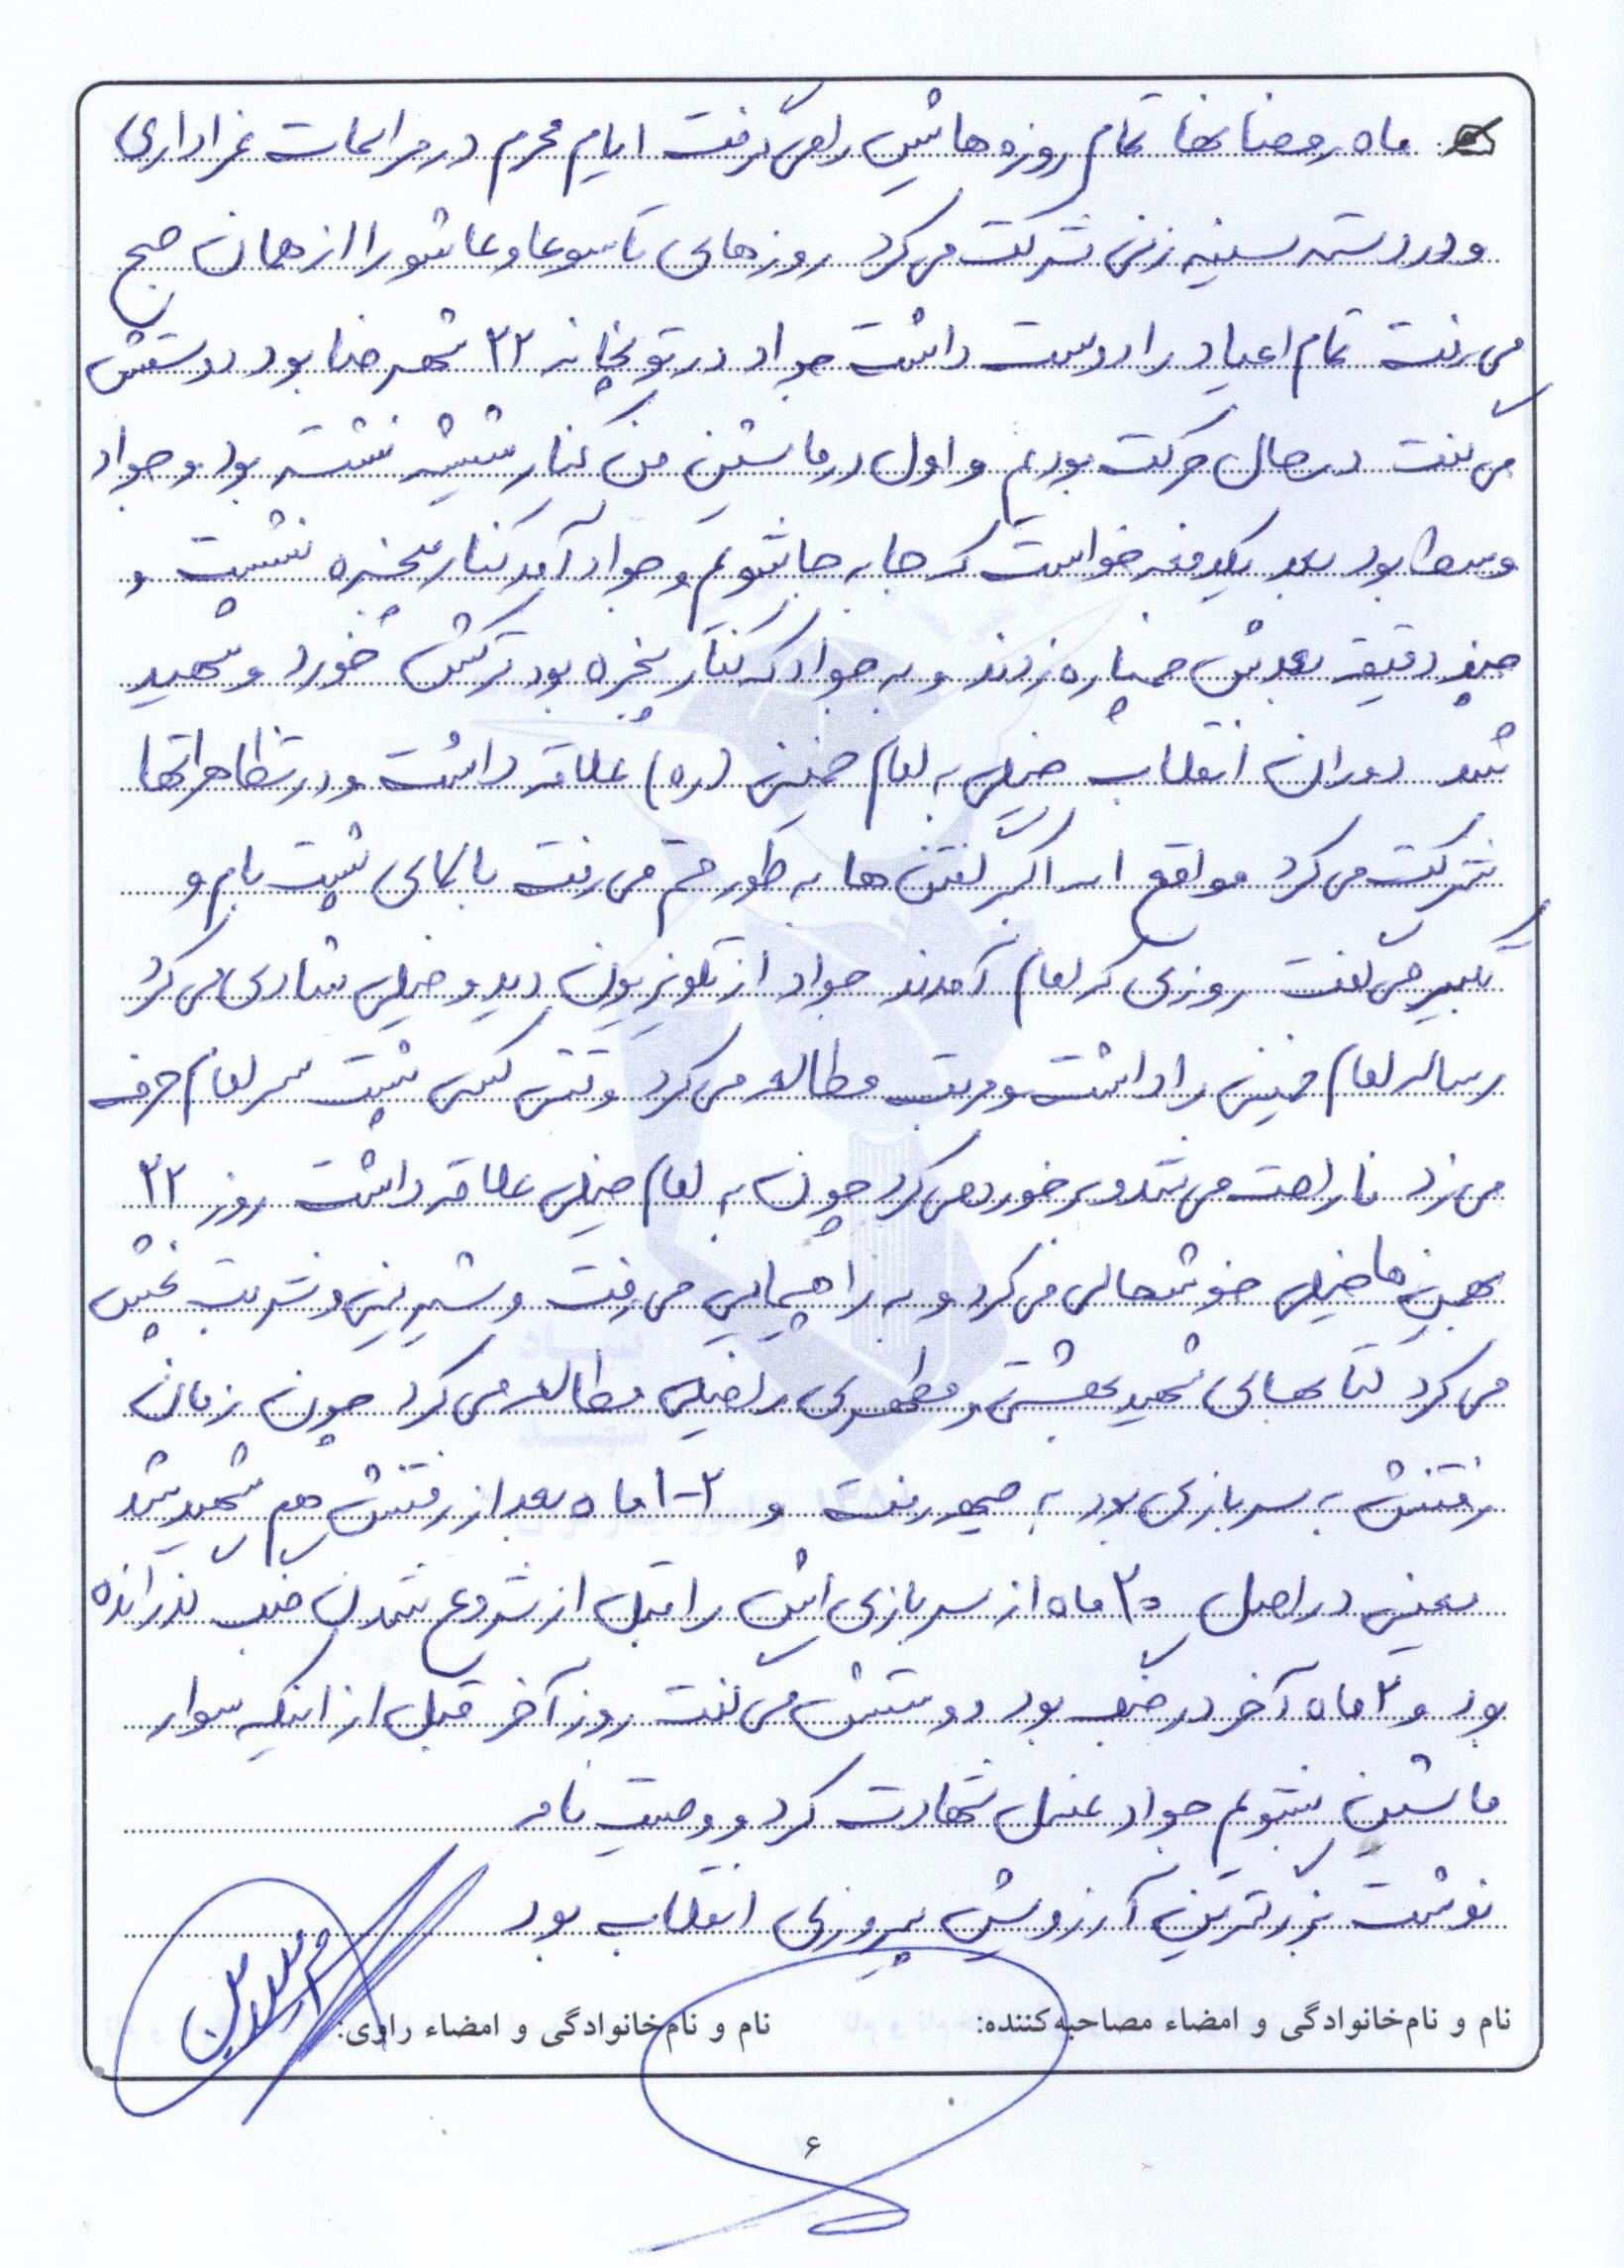 ماه رمضانها تمام روزه هایش را می گرفت ایام محرم در مراسمات عزاداری
و در دسته سینه زنی شرکت می کرد روزهای تاسوعا و عاشورا از همان صبح
می رفت تمام اعیاد را دوست داشت جواد در توپخانه ۲۲ شهرضا بود دوستش
می گفت در حال حرکت بودیم و اول در ماشین من کنار شیشه نشسته بود و جواد
وسط بود بعد یکدفعه خواست که جا به جا شویم و جواد آمد کنار پنجره نشست و
چند دقیقه بعدش خمپاره زدند و به جواد که کنار پنجره بود ترکش خورد و شهید
شد دوران انقلاب خیلی به امام خمینی (ره) علاقه داشت و در تظاهراتها
شرکت می کرد مواقع الله اکبر گفتن ها به طور حتم می رفت بالای پشت بام و
تکبیر می گفت روزی که امام آمدند جواد از تلویزیون دید و خیلی شادی می کرد
رساله امام خمینی را داشت و مرتب مطالعه می کرد وقتی کسی پشت سر امام حرف
می زد ناراحت می شد و برخورد می کرد چون به امام خیلی علاقه داشت روز ۲۲
بهمن ها خیلی خوشحالی می کرد و به راهپیمایی می رفت و شیرینی و شربت پخش
می کرد کتابهای شهید بهشتی و مطهری را خیلی مطالعه می کرد چون زمان
رفتنش به سربازی بود به جبهه رفت و ۱-۲ ماه بعد از رفتنش هم شهید شد
یعنی در اصل ۲۰ ماه از سربازی اش را قبل از شروع شدن جنگ گذرانده
بود و ۲ ماه آخر در جنگ بود دوستش می گفت روز آخر قبل از اینکه سوار
ماشین بشویم جواد غسل شهادت کرد و وصیت نامه
نوشت بزرگترین آرزویش پیروزی انقلاب بود
نام و نام‌خانوادگی و امضاء مصاحبه‌کننده: نام و نام‌خانوادگی و امضاء راوی:
۶